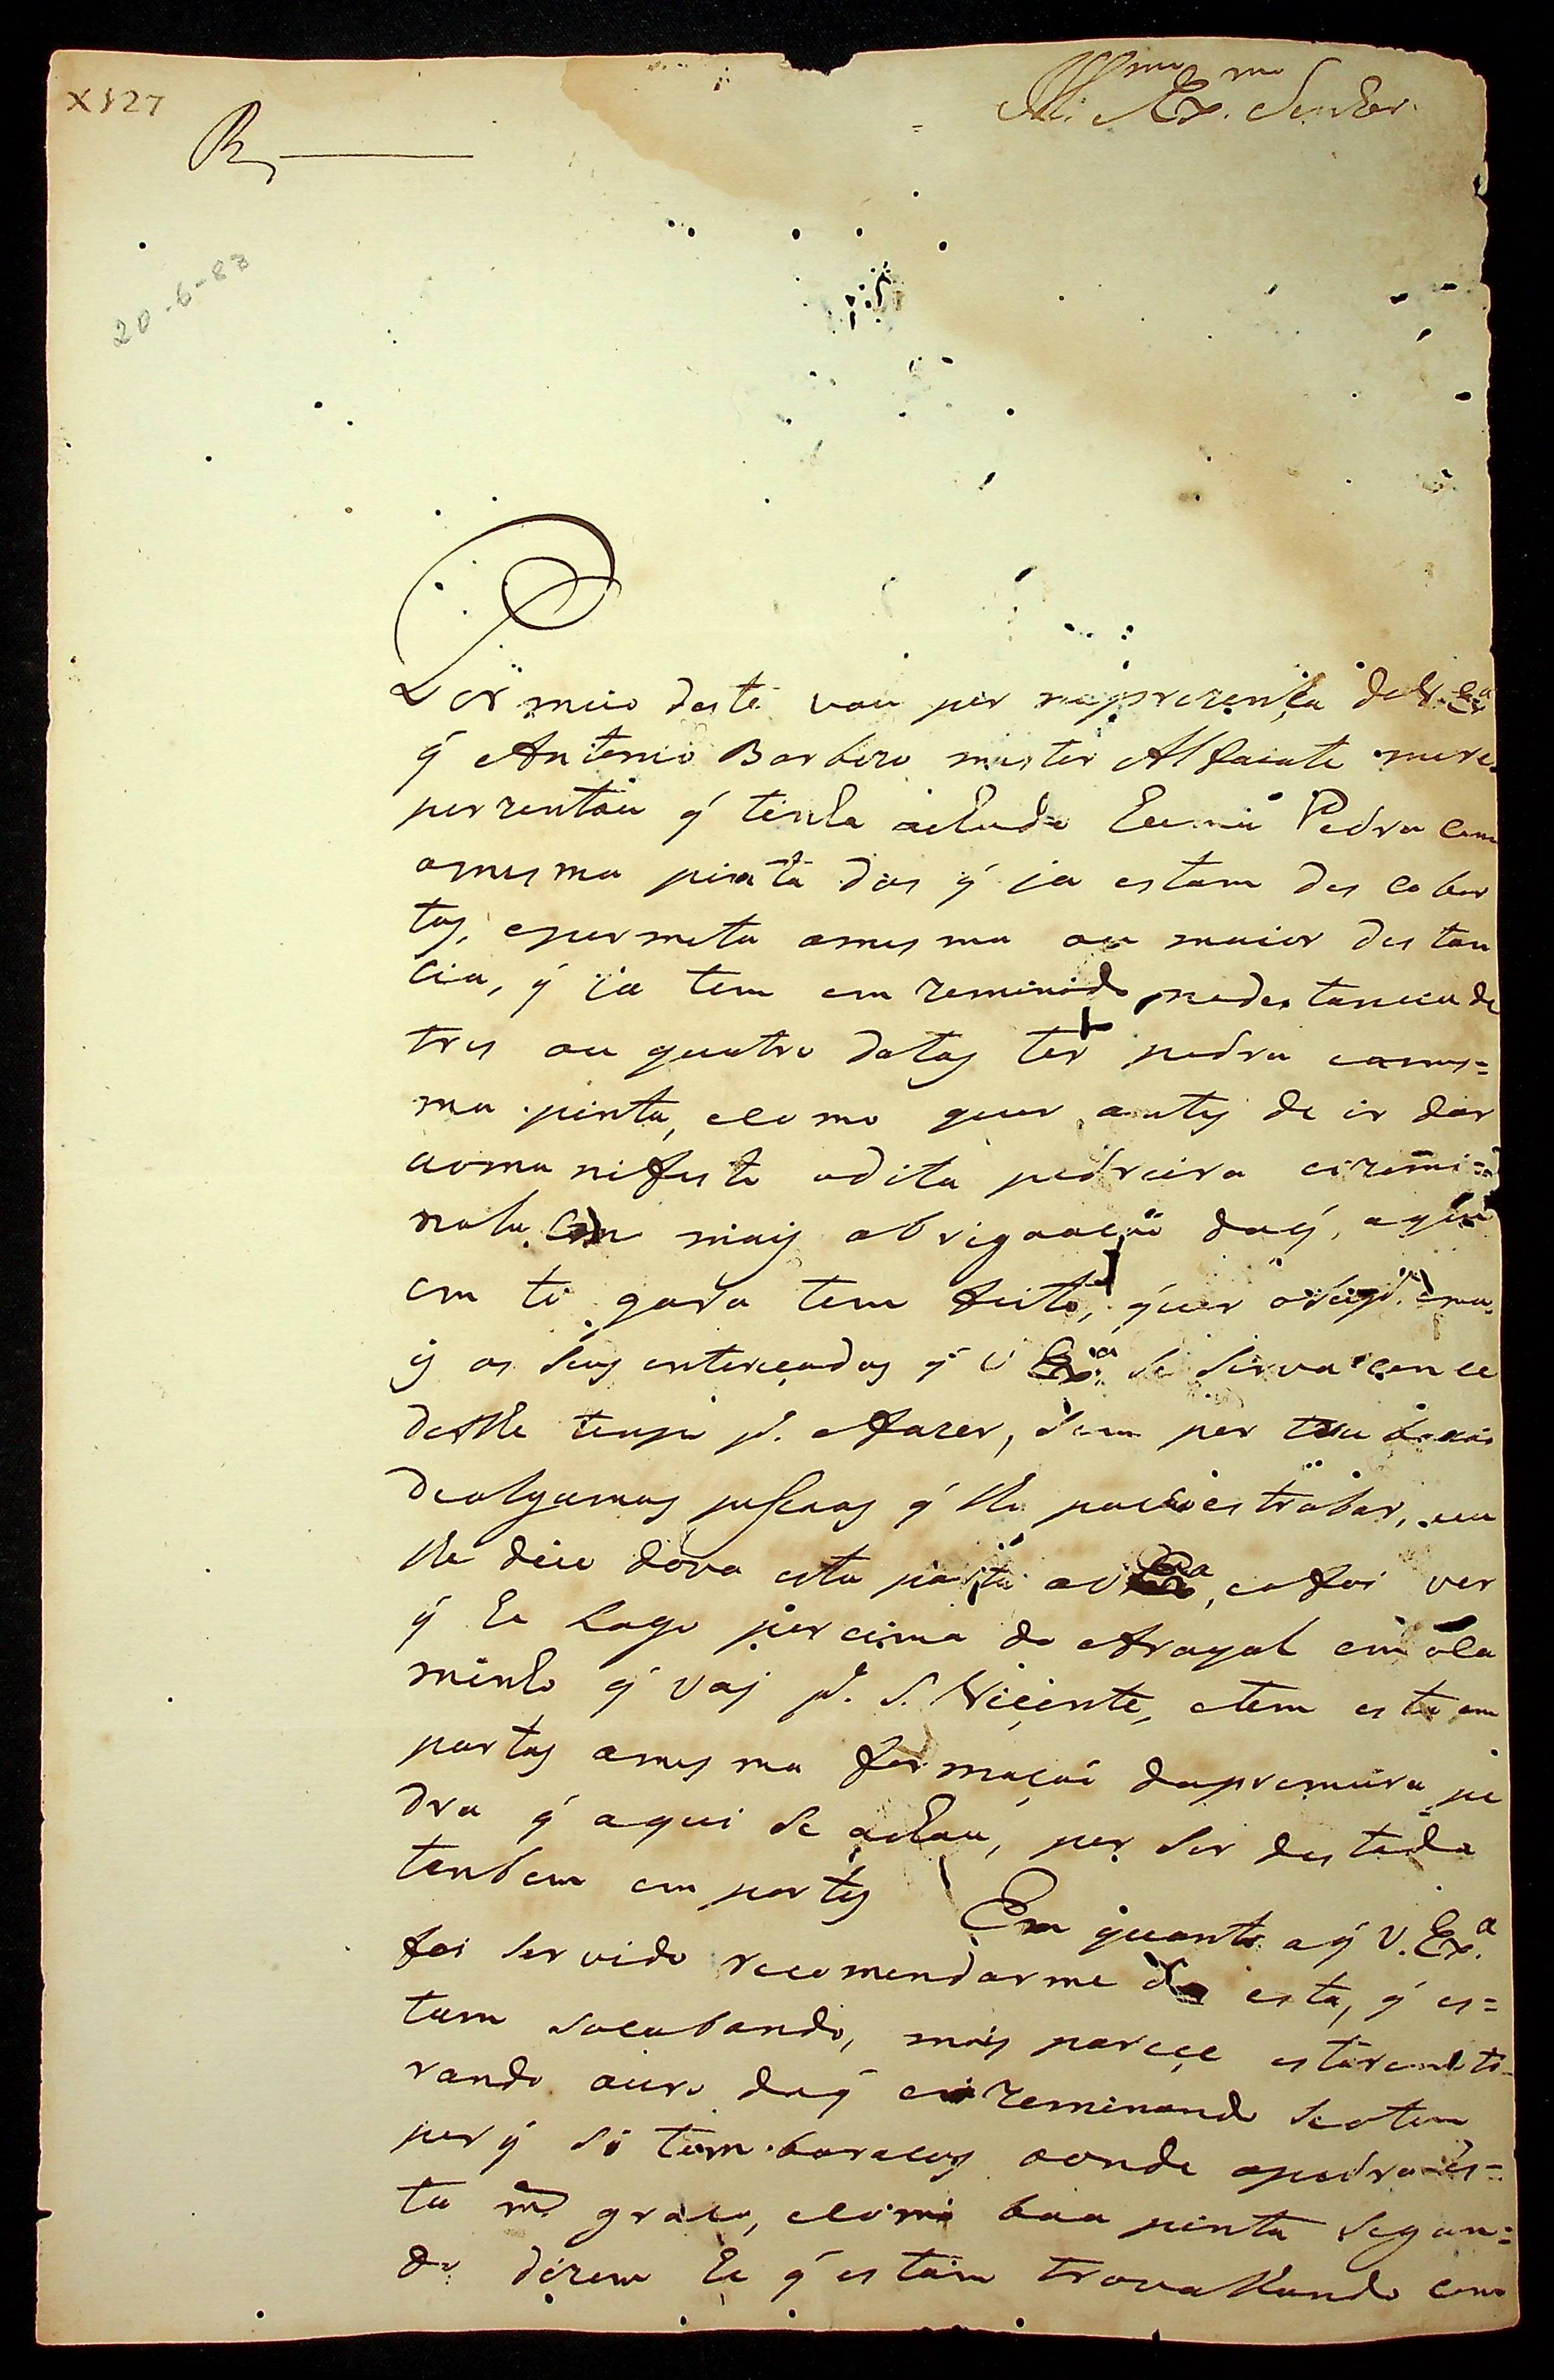 X 827
Ill.mo Ex.mo Senhor
R,
20-6-83
Por meio deste vou por na prezença de V. Ex.a
q̃ Antonio Barbozo mestre Alfaiate mere-
perzentou q̃ tinha achado huma Pedra com
amesma pinta das q̃ ja estam des cober
tas, epermeta amesma ou maior des tan
cia, q̃ ja tem em zeminado, nades tancea de
tres ou quatro datas ter pedra eames=
ma pinta, ecomo quer antes de ir dar
aoma nifesto adita pedreira eizemi=
nala com mais obrigaacaõ daq̃, aqui
em ti gora tem feito, quer ema
is os seus entereçados q̃ V Ex.a se sirva con ce
delhe tempo p.a ofazer, sem per
dealgumas pesoas q̃ lhe estrobar, eu
lhe dice dava esta parte a V Ex.a, eofoi ver
q̃ he Logo por cima do Arayal em o ca
minho q̃ vai p.a S. Vicente, etem esta em
partes ames ma formaçaõ dapremeira pe
dra q̃ aqui se achou, por ser des tada
tanbem em partes Em quanto aq̃ V. Ex.a
foi ser vido recomendarme esta, q̃ es=
tam socabando, mais parece estarem ti-
rando ouro daq̃ eizeminando seotem
per q̃ si tem boracos aonde apedra es=
ta m.to graca, ecomo boa pinta segun=
do dizem he q̃ estam travalhando com